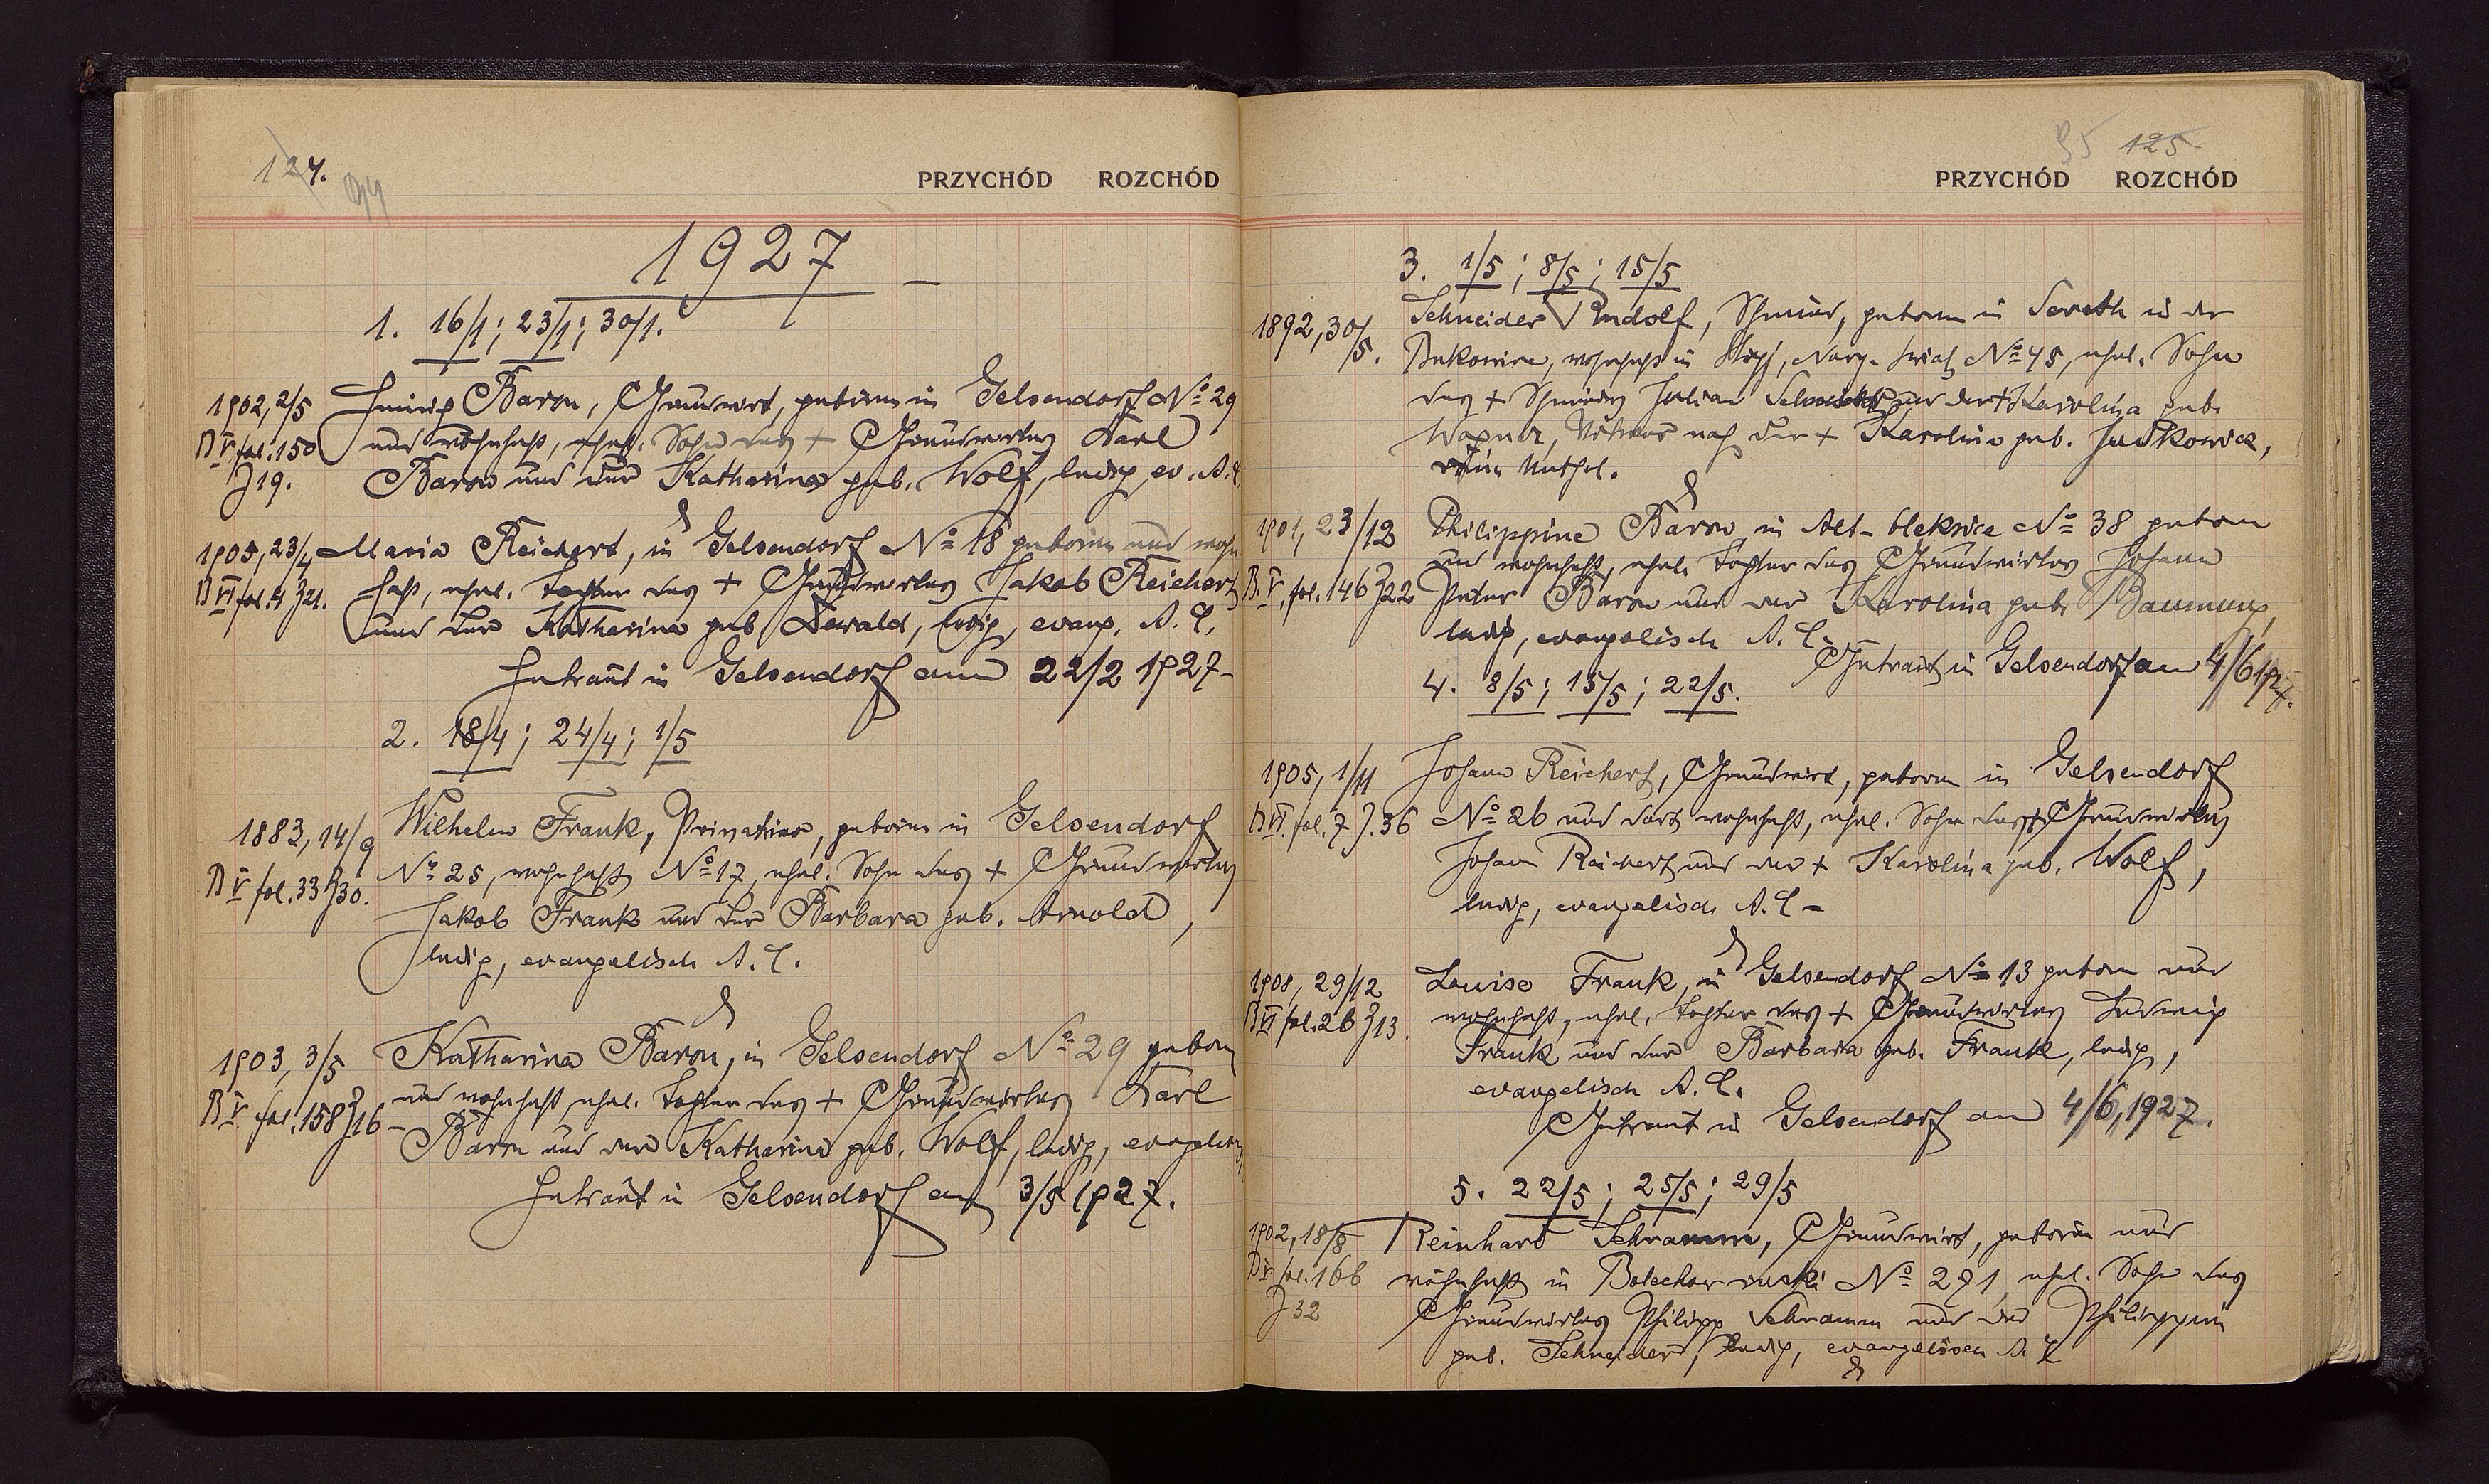 124. 94
PRZYCHÓD ROZCHÓD
1927 –
1. 16/1; 23/1; 30/1.
1902, 2/5 Heinrich Baron, Grundwirt, geboren in Gelsendorf No 29
B V fol. 150 und wohnhaft, ehel. Sohn des + Grundwirtes Karl
Z 19. Baron und der Katharina geb. Wolf, ledig, ev. A.
&
1905, 23/4 Maria Reichert, in Gelsendorf No 18 geboren und wohn
B VI fol. 4 Z 21. haft, ehel. Tochter des + Grundwirtes Jakob Reichert
und der Katharina geb. Dewald, ledig, evang. A. C.
Getraut in Gelsendorf am 22/2 1927 –
2. 18/4; 24/4; 1/5
1883, 14/9 Wilhelm Frank, Privatier, geboren in Gelsendorf
B V fol. 33 Z 30. No 25, wohnhaft No 17, ehel. Sohn des + Grundwirtes
Jakob Frank und der Barbara geb. Arnold,
ledig, evangelisch A. C.
&
1903, 3/5 Katharina Baron, in Gelsendorf No 29 geboren
B V. fol. 158 Z 16 und wohnhaft, ehel. Tochter des + Grundwirtes Karl
Baron und der Katharina geb. Wolf, ledig,
Getraut in Gelsendorf am 3/5 1927.
95 125.
PRZYCHÓD ROZCHÓD
3. 1/5; 8/5; 15/5
1892, 30/5. Schneider Rudolf, Schmied, geboren in Sereth in der
Bukowina, wohnhaft in Stryj, No 45, ehel. Sohn
des + Schmiedes Julian und der + Karolina geb.
Wagner, Witwer nach der + Karolina geb. Judkowicz,
röm. kathol.
&
1901, 23/12 Philippine Baron, in Alt-Oleksice No 38 geboren
B. V. fol. 146 Z 22 und wohnhaft, ehel. Tochter des Grundwirtes Johann
Peter Baron und der Karolina geb. Baumung,
ledig, evangelisch A. C.
Getraut in Gelsendorf am 4/6 1927.
4. 8/5; 15/5; 22/5.
1905, 1/11 Johann Reichert, Grundwirt, geboren in Gelsendorf
B VI. fol. 7 Z. 36 No 26 und dort wohnhaft, ehel. Sohn des + Grundwirtes
Johann Reichert und der + Karolina geb. Wolf,
ledig, evangelisch A. C –
&
1908, 29/12 Louise Frank, in Gelsendorf No 13 geboren und
B VI fol. 26 Z 13. wohnhaft, ehel. Tochter des + Grundwirtes Ludwig
Frank und der Barbara geb. Frank, ledig,
evangelisch A. C.
Getraut in Gelsendorf am 4/6, 1927.
5. 22/5; 25/5; 29/5
1902, 18/8 Reinhard Schramm, Grundwirt, geboren und
B V fol. 166 wohnhaft in Bolechow ruski No 271, ehel. Sohn des
Z 32 Grundwirtes Philipp Schramm und der Philippine
geb. Schneider, ledig, evangelisch A. C
&